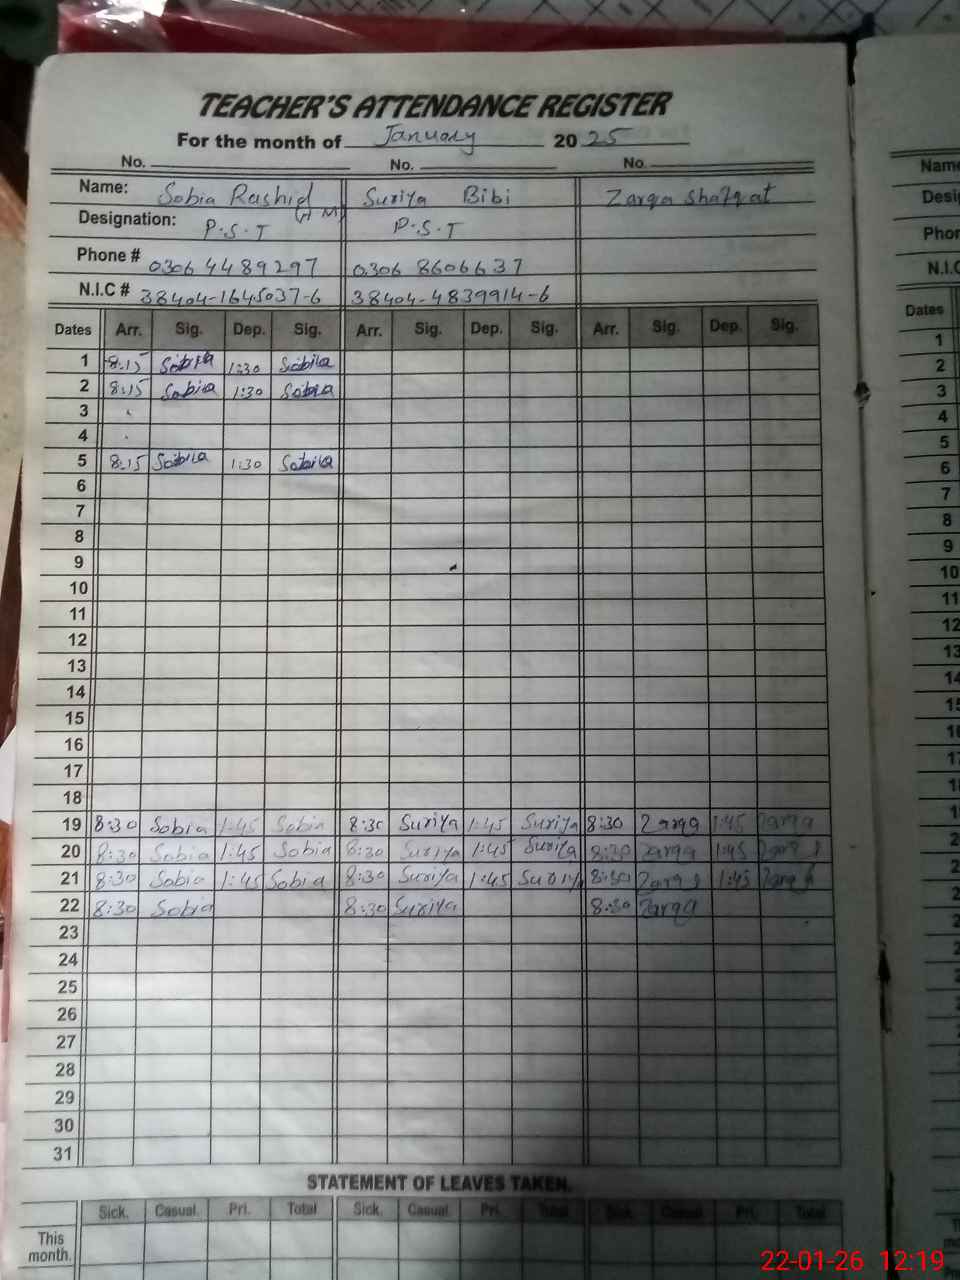 TEACHER'S ATTENDANCE REGISTER
For the month of January 2025
No. No. No.
Name: Sobia Rashid (H M) Suriya Bibi Zarqa Shafqat
Designation: P.S.T P.S.T
Phone # 0306 4489297 0306 8606637
N.I.C # 38404-1645037-6 38404-4839914-6
Dates Arr. Sig. Dep. Sig. Arr. Sig. Dep. Sig. Arr. Sig. Dep. Sig.
1 8:15 Sobia 1:30 Sobia
2 8:15 Sobia 1:30 Sobia
3
4
5 8:15 Sobia 1:30 Sobia
6
7
8
9
10
11
12
13
14
15
16
17
18
19 8:30 Sobia 1:45 Sobia 8:30 Suriya 1:45 Suriya 8:30 Zarqa 1:45 Zarqa
20 8:30 Sobia 1:45 Sobia 8:30 Suriya 1:45 Suriya 8:30 Zarqa 1:45 Zarqa
21 8:30 Sobia 1:45 Sobia 8:30 Suriya 1:45 Suriya 8:30 Zarqa 1:45 Zarqa
22 8:30 Sobia 8:30 Suriya 8:30 Zarqa
23
24
25
26
27
28
29
30
31
STATEMENT OF LEAVES TAKEN.
Sick. Casual. Pri. Total Sick. Casual. Pri. Total Sick. Casual. Pri. Total
This
month.
Name
N.I.C
Dates
1
2
3
4
5
6
7
8
9
10
11
12
13
22-01-26 12:19